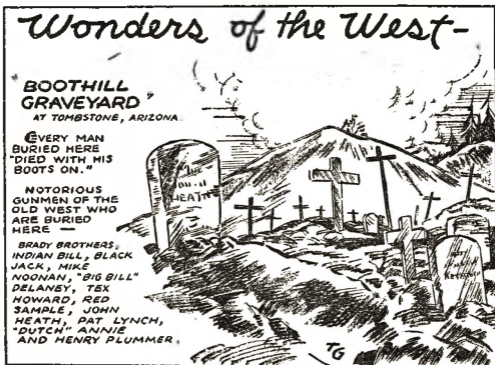 Wonders of the West—
BOOTHILL
GRAVEYARD
AT TOMBSTONE, ARIZONA.
EVERY MAN
BURIED HERE
"DIED WITH HIS
BOOTS ON."
NOTORIOUS
GUNMEN OF THE
OLD WEST WHO
ARE BURIED
HERE —
BRADY BROTHERS,
INDIAN BILL, BLACK
JACK, MIKE
NOONAN, "BIG BILL"
DELANEY, TEX
HOWARD, RED
SAMPLE, JOHN
HEATH, PAT LYNCH,
"DUTCH" ANNIE
AND HENRY PLUMMER.
HEATH
TG